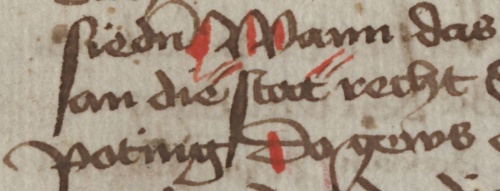 siedn Wann das
an die stat recht
poting Do gews